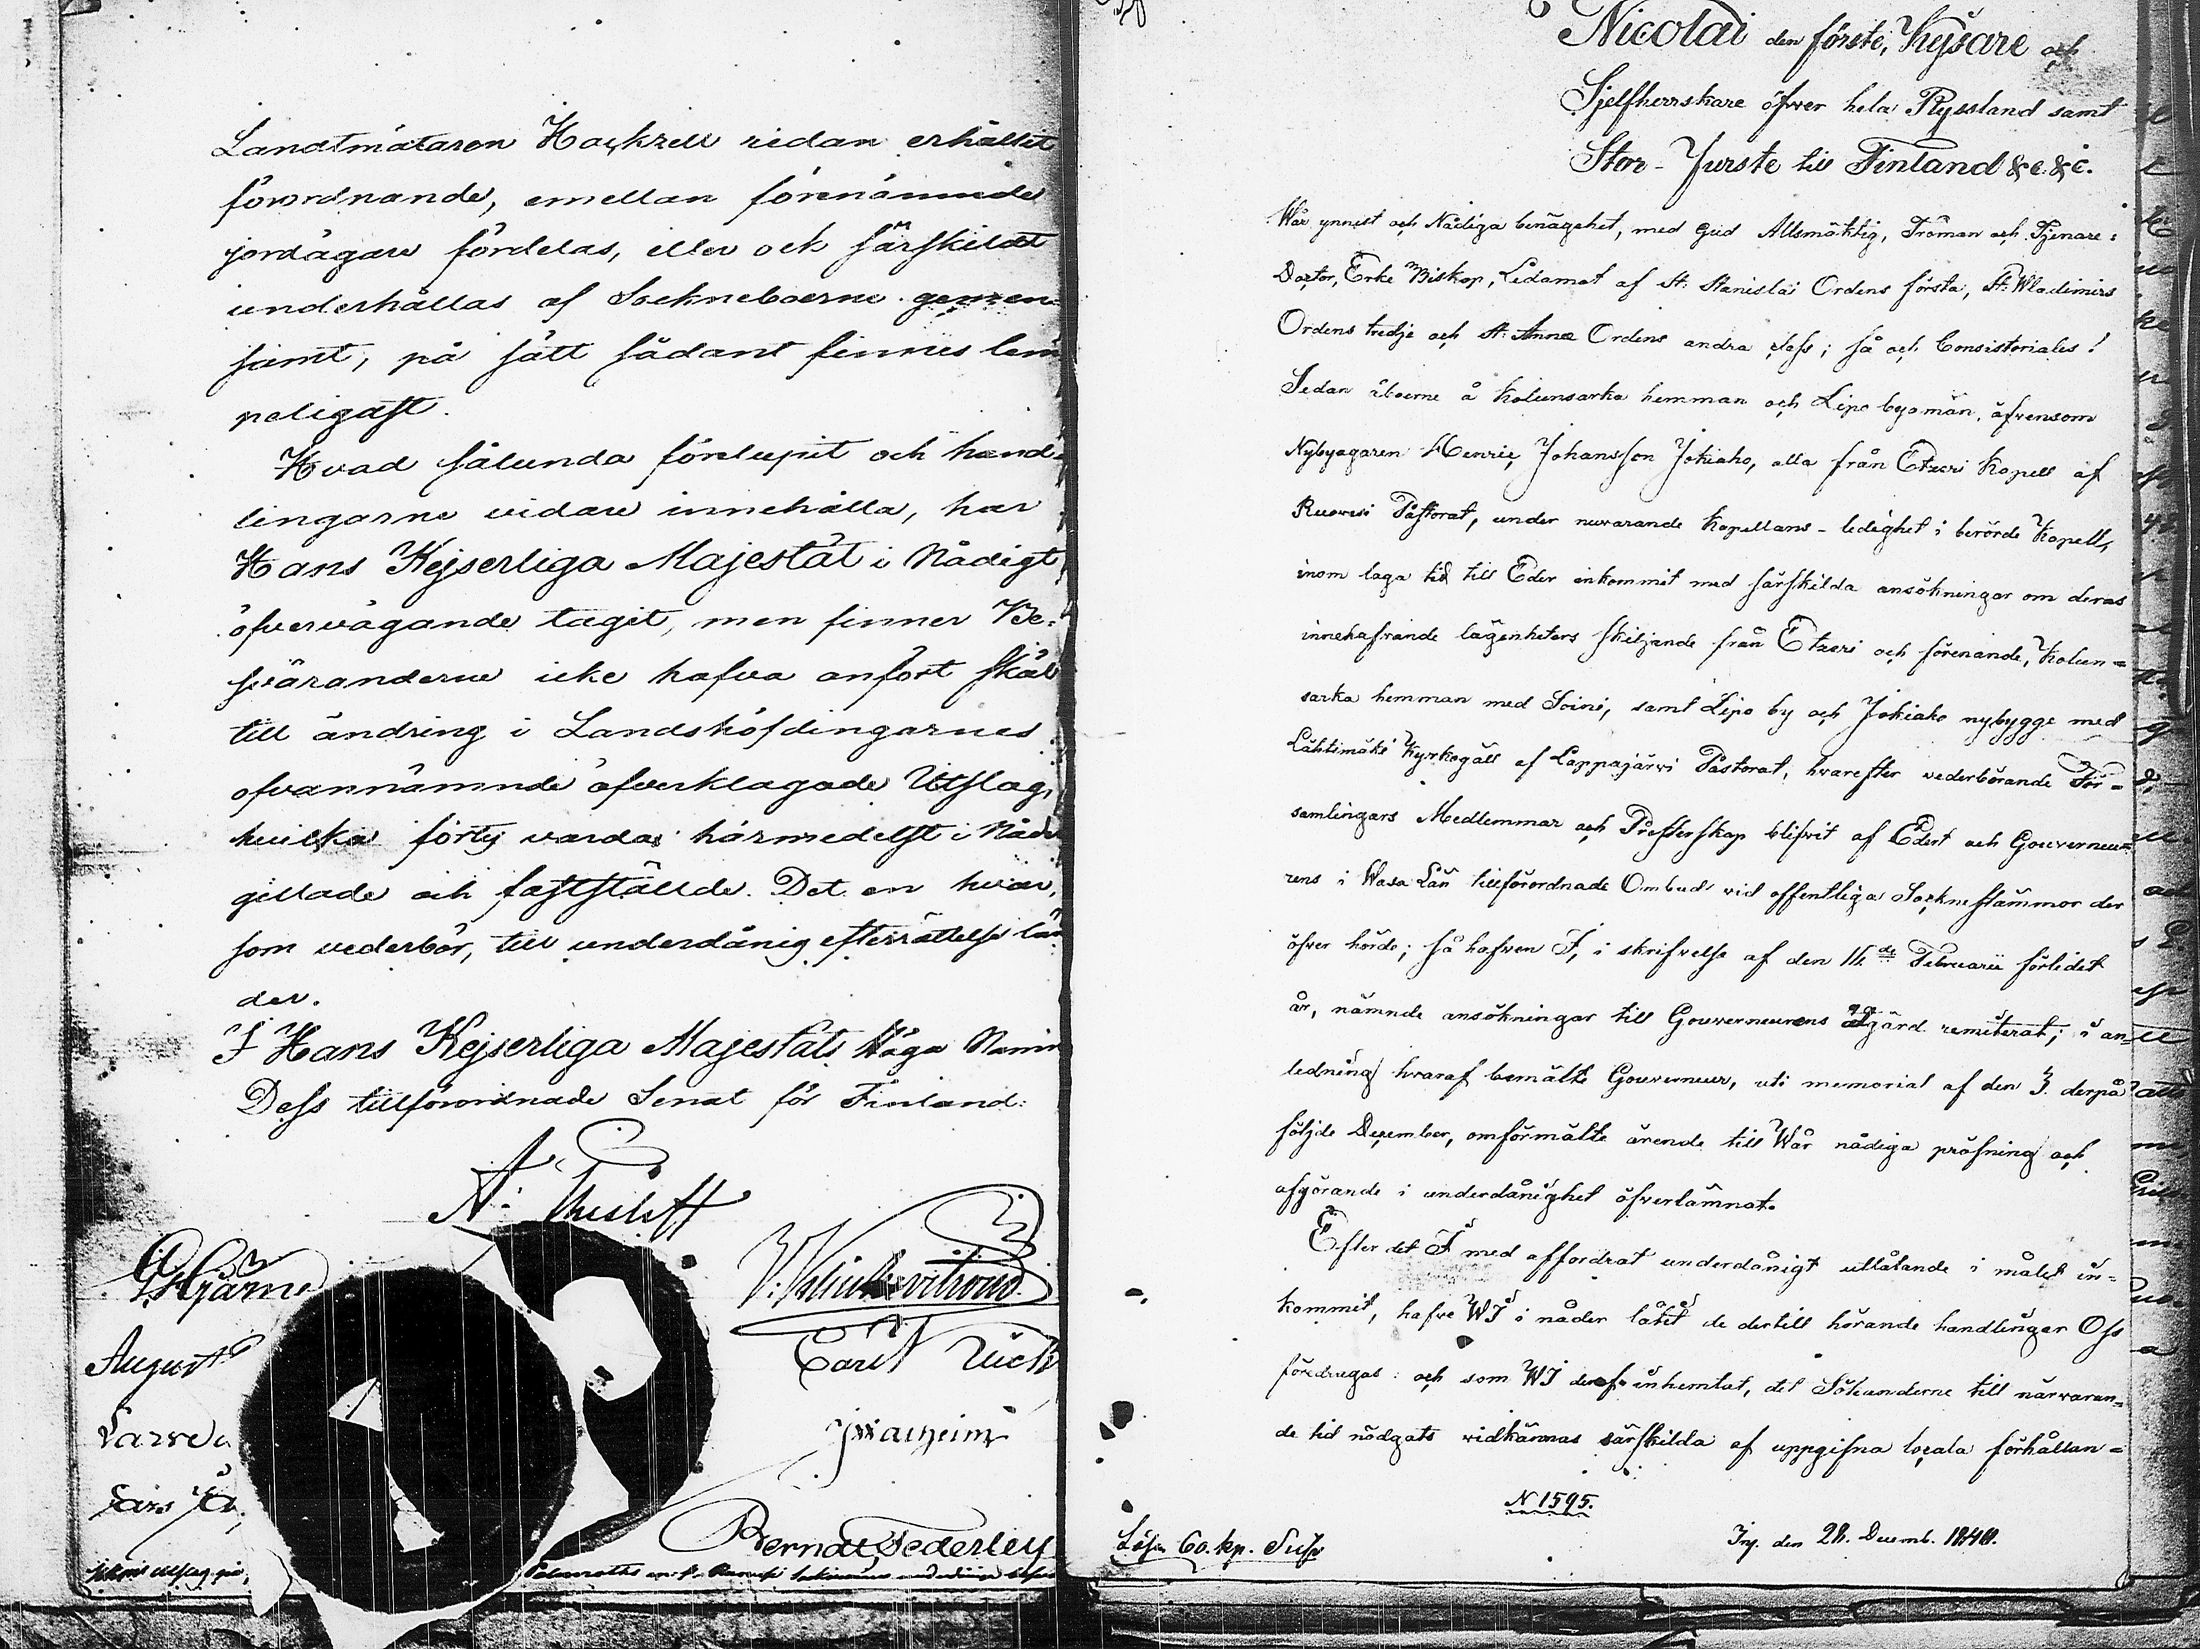 Landtmätaren Hackzell redan erhållit
förordnande, emellan förenämnde
jordägare fördelas, eller och särskildt
underhållas af Sockneboerne gemen=
samt, på sätt sådant finnes läm
peligast.
Hvad sålunda förelupit och hand=
lingarne vidare innehålla, har
Hans Kejserliga Majestät i Nådigt
öfvervägande tagit, men finner Be=
sväranderne icke hafva anfört skäl
till ändring i Landshöfdingarnes
ofvannämnde öfverklagade Utslag,
hvilka förty varda härmedelst i Nåder
gillade och fastställde. Det en hvar,
som vederbör, till underdånig efterrättelse län
der.
I Hans Kejserliga Majestäts Höga Namn
Dess tillförordnade Senat för Finland:
A.
G Hjärne
August
Lars
Carl
J Walheim
Bernd Federley
Nicolai den förste, Kejsare och
Sjelfherrskare öfver hela Ryssland samt
Stor-Furste till Finland &c. &c.
Wår ynnest och Nådiga benägenhet, med Gud Allsmäktig, Troman och Tjenare:
Doctor, Erke Biskop, Ledamot af St. Stanislai Ordens första, St. Wladimirs
Ordens tredje och St. Annæ Ordens andra class; så och Consistoriales!
Sedan åboerne å Kolunsarka hemman och Lipo byamän, äfvensom
Nybyggaren Henric Johansson Jokiaho, alla från Etzeri Kapell af
Ruovesi Pastorat, under nuvarande Kapellans-ledighet i berörde Kapell,
inom laga tid till Eder inkommit med särskilda ansökningar om deras
innehafvande lägenheters skiljande från Etzeri och förenande, Kolun=
sarka hemman med Soini, samt Lipo by och Jokiaho nybygge med
Lähtimäki Kyrkogäll af Lappajärvi Pastorat, hvarefter vederbörande För=
samlingars Medlemmar och Presterskap blifvit af Edert och Gouverneu=
rens i Wasa Län tillförordnade Ombud vid offentliga Sockneståmmor der
öfver hörde; så hafven I, i skrifvelse af den 16de Februarii förlidet
år, nämnde ansökningar till Gouverneurens åtgärd remitterat; i an=
ledning hvaraf bemälte Gouverneur, uti memorial af den 3. derpå=
följde December, omförmälte ärende till Wår nådiga pröfning och
afgörande i underdånighet öfverlämnat.
Efter det I med affordrat underdånigt utlåtande i målet in=
kommit, hafve WI i nåder låtit de dertill hörande handlingar Oss
föredragas: och som WI deraf inhemtat, det Sökanderne till närvaran=
de tid nödgats vidkännas särskilda af uppgifna locala förhållan=
N 1595.
Lösen 60. kp. Silfr
Inj. den 28. Decemb. 1840.